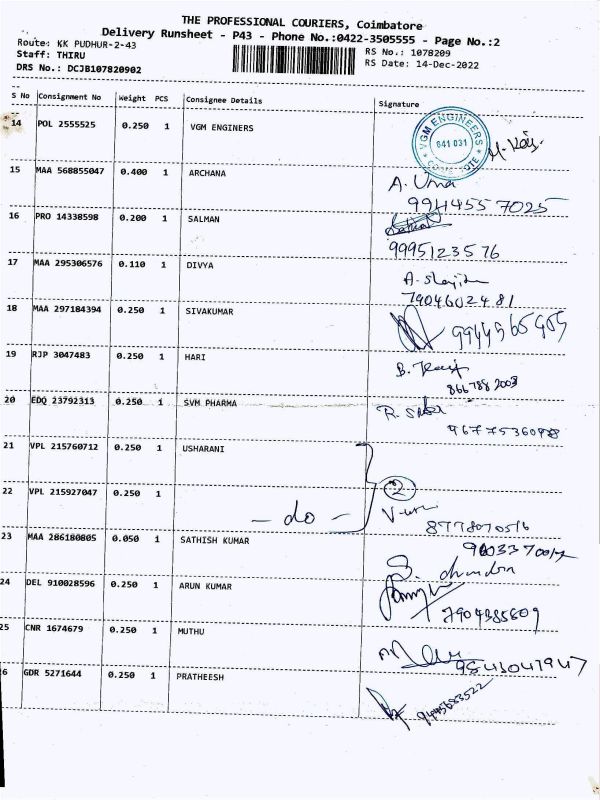 THE PROFESSIONAL COURIERS, Coimbatore
Delivery Runsheet - P43 - Phone No.:0422-3505555 - Page No.:2
Route: KK PUDHUR-2-43
RS No.: 1078209
Staff: THIRU
RS Date: 14-Dec-2022
DRS No.: DCJB107820902
S No Consignment No Weight PCS Consignee Details Signature
14 POL 2555525 0.250 1 VGM ENGINERS
VGM ENGINEERS
641 031
15 MAA 568855047 0.400 1 ARCHANA A. Uma
9944557025
16 PRO 14338598 0.200 1 SALMAN
9995123576
17 MAA 295306576 0.110 1 DIVYA
7904602481
18 MAA 297184394 0.250 1 SIVAKUMAR
19 RJP 3047483 0.250 1 HARI B.
8667882003
20 EDQ 23792313 0.250 1 SVM PHARMA R.
21 VPL 215760712 0.250 1 USHARANI
2
22 VPL 215927047 0.250 1 - do -
23 MAA 286180805 0.050 1 SATHISH KUMAR
S. chandra
24 DEL 910028596 0.250 1 ARUN KUMAR
25 CNR 1674679 0.250 1 MUTHU
9543047947
6 GDR 5271644 0.250 1 PRATHEESH
9445683522